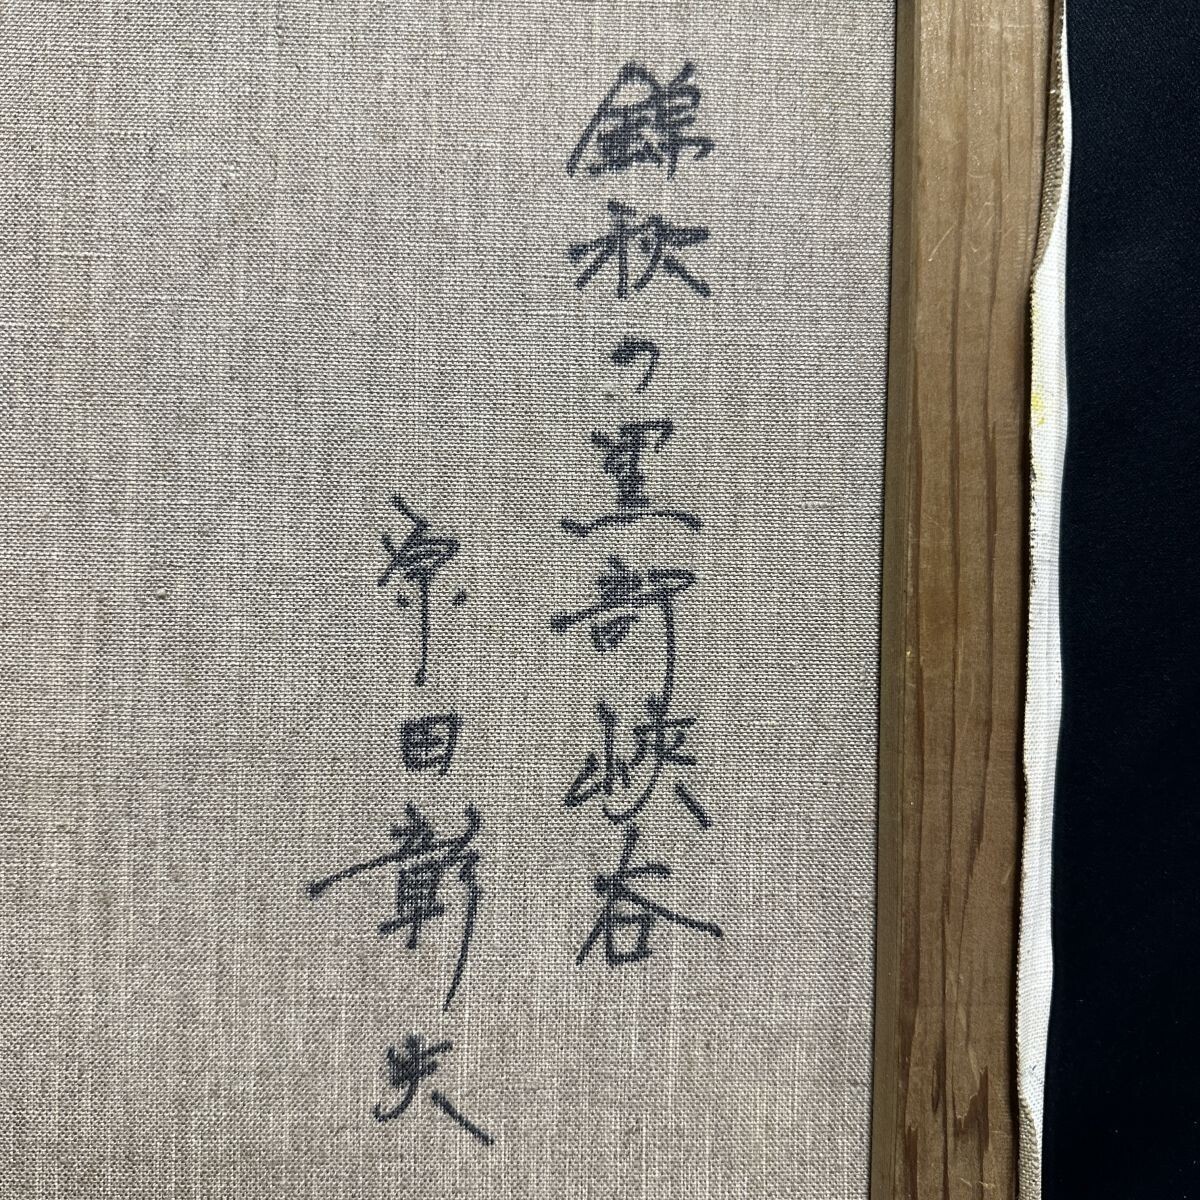 錦秋の黒部峡谷
京田彰夫